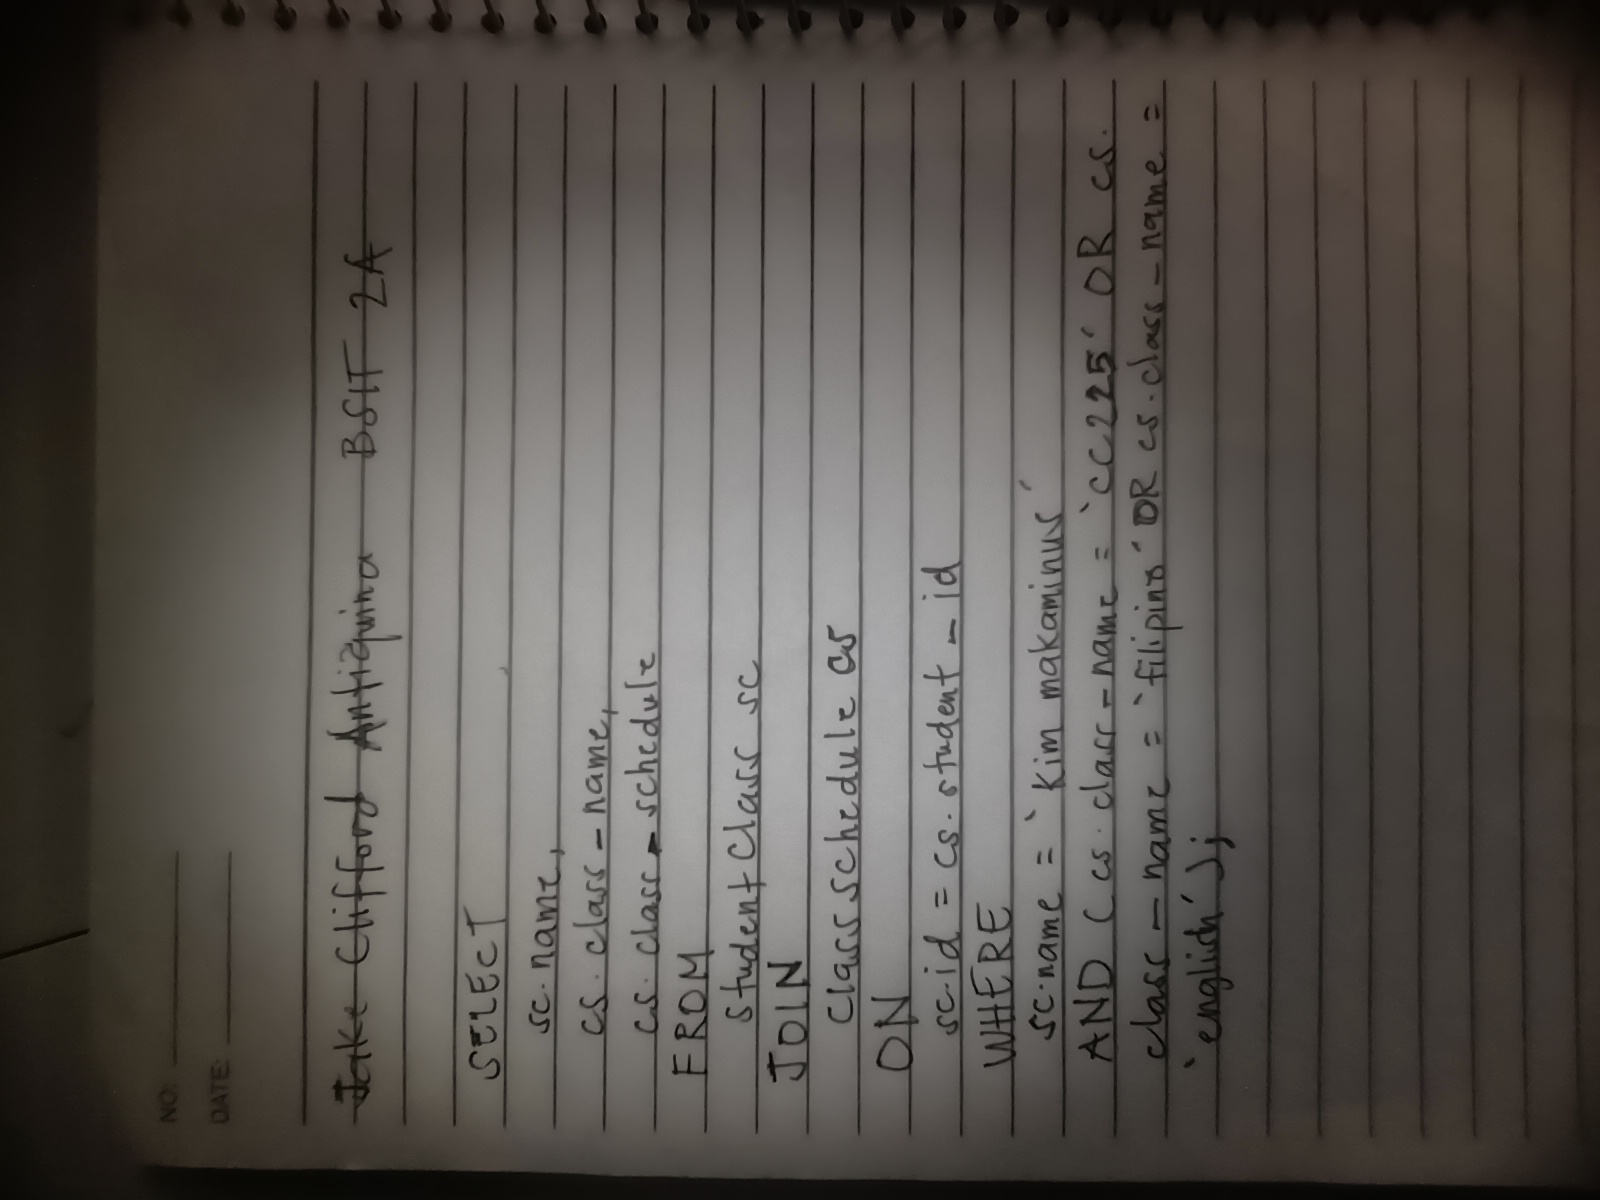 NO:
DATE:
Jake Clifford Antiquina BSIT 2A
SELECT
sc.name,
cs.class_name,
cs.class_schedule
FROM
student Class sc
JOIN
Class schedule cs
ON
sc.id = cs.student_id
WHERE
sc.name = `Kim makaminus´
AND (cs.class_name = `CC225´ OR cs.
class_name = `filipino´ OR cs.class_name =
`english´);